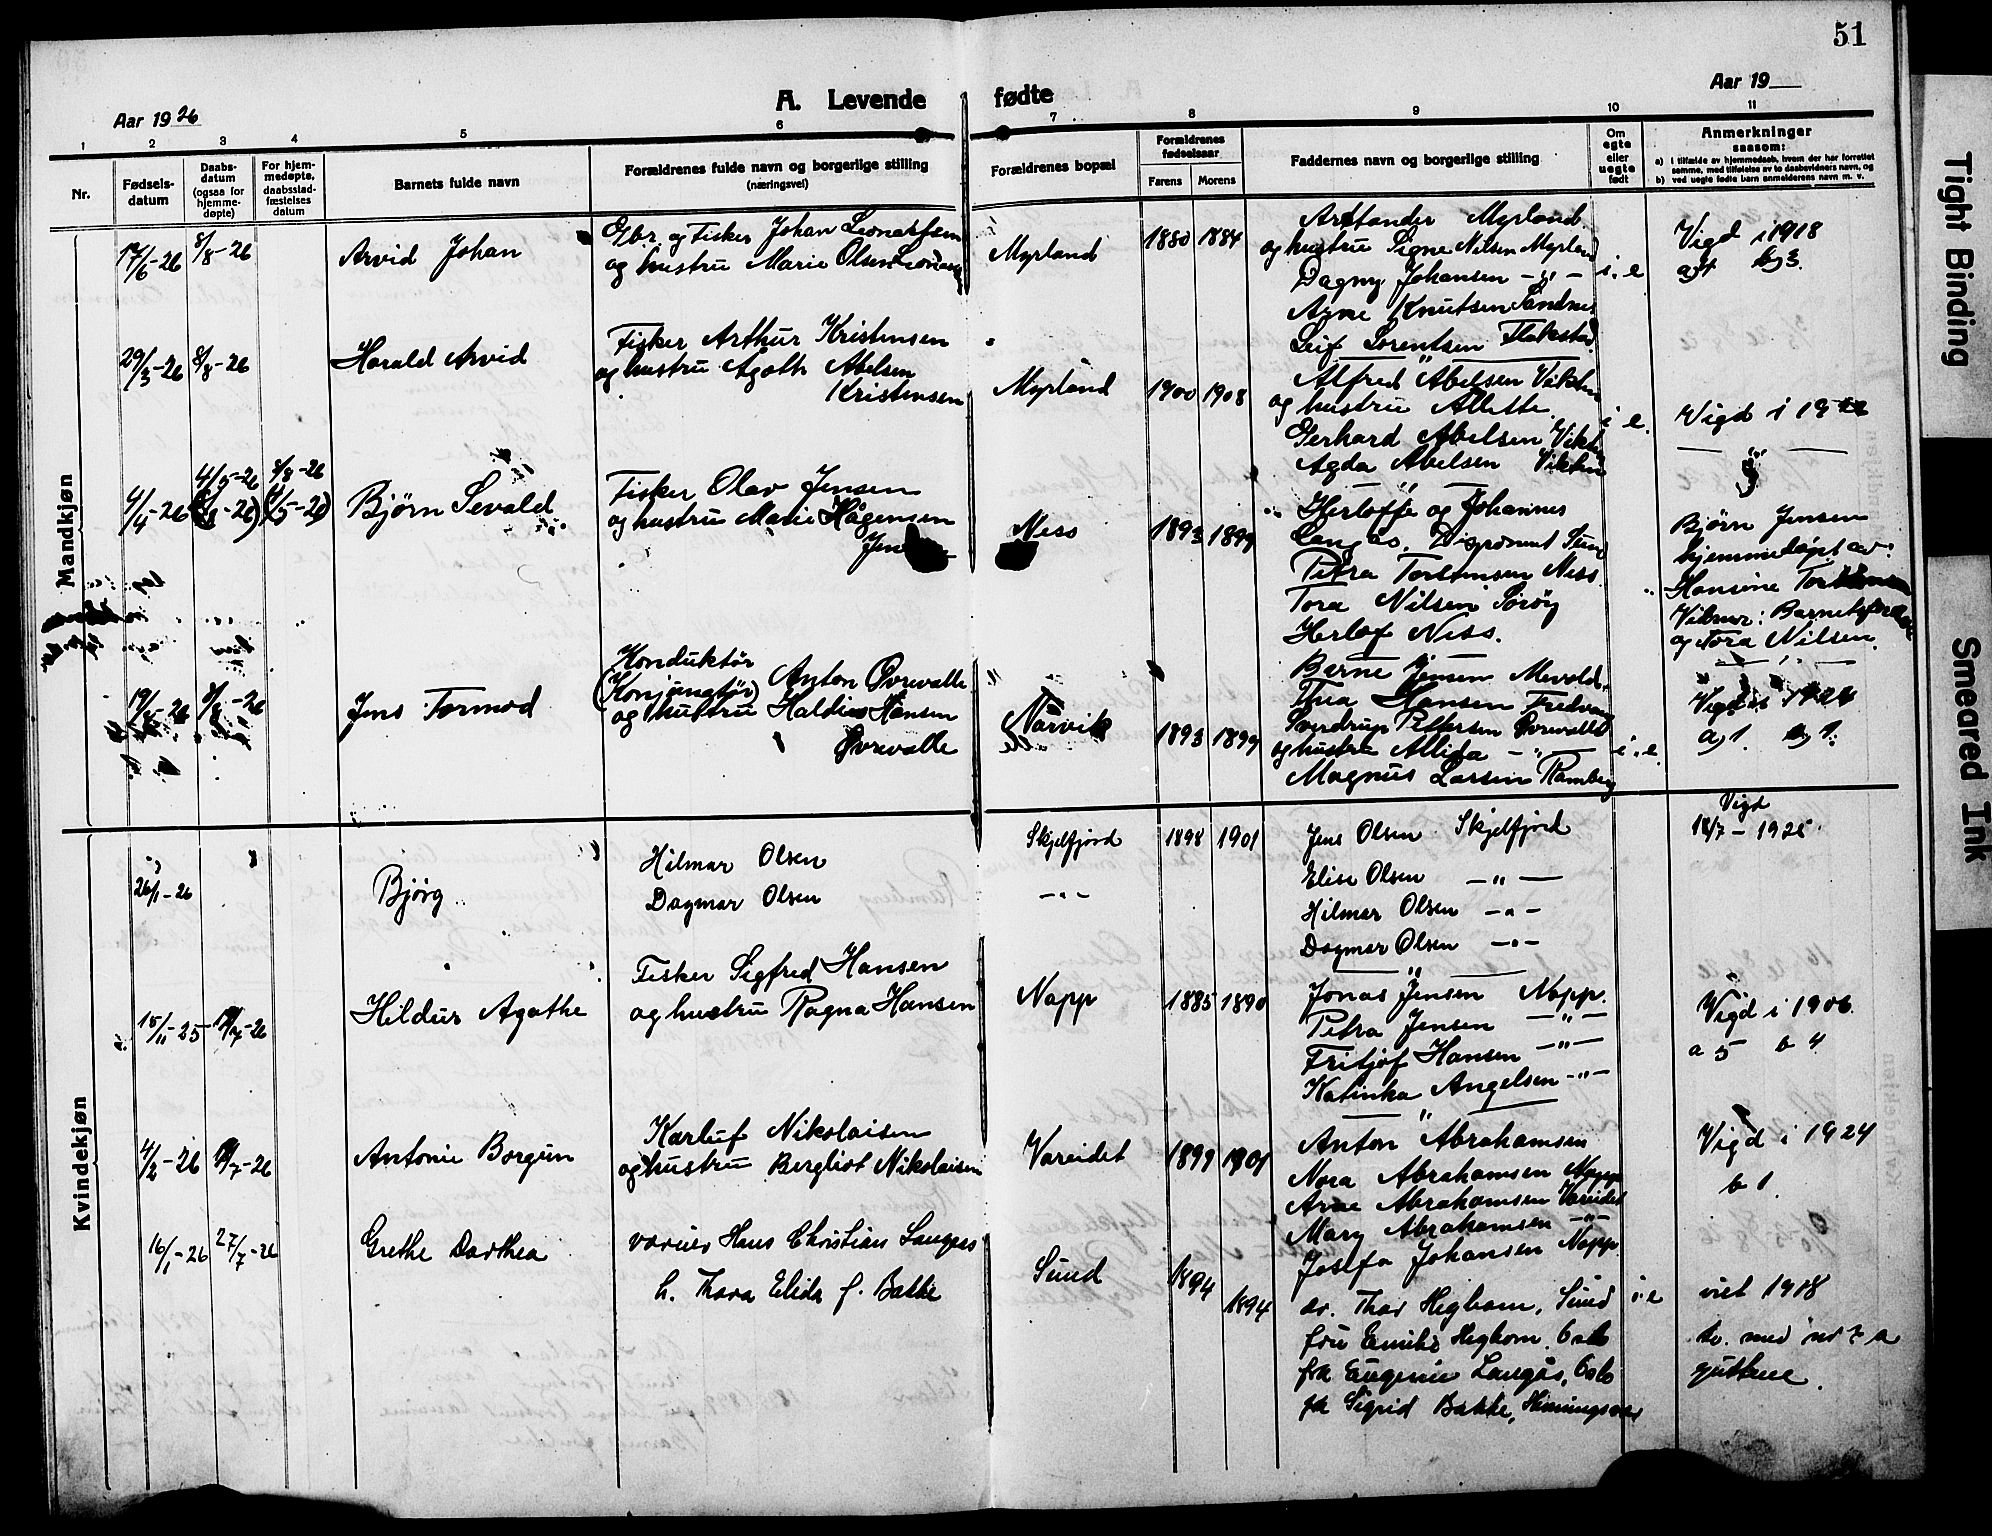 51
A. Levende fødte
Aar 1926
Aar 19
1 2 3 4 5 6 7 8 9 10 11
Nr.
Fødsels-
datum
Daabs-
datum
(ogsaa for
hjemme-
døpte)
For hjem-
medøpte,
daabsstad-
fæstelses
datum
Barnets fulde navn
Forældrenes fulde navn og borgerlige stilling
(næringsvei)
Forældrenes bopæl
Forældrenes
fødselsaar
Farens Morens
Faddernes navn og borgerlige stilling
Om
egte
eller
uegte
født
Anmerkninger
saasom:
a) i tilfælde av hjemmedaab, hvem der har forrettet
samme, med tilføielse av to daabsvidners navn, og
b) ved uegte fødte barn anmelderens navn m. v.
Mandkjøn
17/6-26 8/8-26
Arvid Johan
Gbr. og Fisker Johan
og hustru Marie Olsen
Myrland
1880 1884
Myrland
og hustru Signe Nilsen Myrland
Dagny Johansen -"-
Arne Knutsen Sandnes
Leif Lorentsen Flakstad
i. e
Vigd i 1918
29/3-26 8/8-26
Harald Arvid
Fisker Arthur Kristensen
og hustru Agoth Abelsen
Kristensen
Myrland
1900 1908
Alfred Abelsen
og hustru Allette
Gerhard Abelsen
Agda Abelsen
i e.
Vigd i
4/4-26
Bjørn Sevald
Fisker Olav Jensen
og hustru Marie Hågensen
Ness
1893 1899
Herloffe og Johannes
Petra Torstensen Ness
Tora Nilsen Sørøy
Herlof Ness.
Bjørn Jensen
hjemmedøpt av:
Hansine
og Tora Nilsen.
8/8-26
Jens Tormod
Konduktør
Anton Øvrevalle
og hustru Hansen
Øvrevalle
Narvik
1893 1899
Berne Jensen
Thea Hansen Fredvang
Sverdrup Pettersen Øvrevalle
og hustru Allida -"-
Magnus Larsen Ramberg
i. e
Vigd i 1924
a 1. b 1.
Kvindekjøn
26/1-26
Bjørg
Hilmar Olsen
Dagmar Olsen
Skjelfjord
-"-
1898 1901
Jens Olsen Skjelfjord
Elise Olsen -"-
Hilmar Olsen -"-
Dagmar Olsen -"-
Vigd
1925.
15/11-25
Hildur Agathe
Fisker Sigfred Hansen
og hustru Ragna Hansen
Napp
1885 1890
Jonas Jensen Napp.
Petra Jensen -"-
Fritjof Hansen -"-
Katinka Angelsen -"-
Vigd i 1906.
a 5 b 4
4/2-26
Antonie Borgun
Karluf Nikolaisen
og hustru Bergliot Nikolaisen
Vareidet
1899 1901
Anton Abrahamsen
Nora Abrahamsen Napp
Arne Abrahamsen Vareidet
Mary Abrahamsen -"-
Josefa Johansen Napp
Vigd i 1924
b 1.
16/1-26 27/7-26
Grethe Dorthea
Hans Christian Langaas
h. Thora Elida f. Bakke
Sund
1894
1894
dr. Thor Heghom, Sund
fru Emilie Heghom, Oslo
frk Eugenie Langås, Oslo
frk Sigrid Bakke,
i. e
viet 1918
guttene.
Tight Binding
Smeared Ink